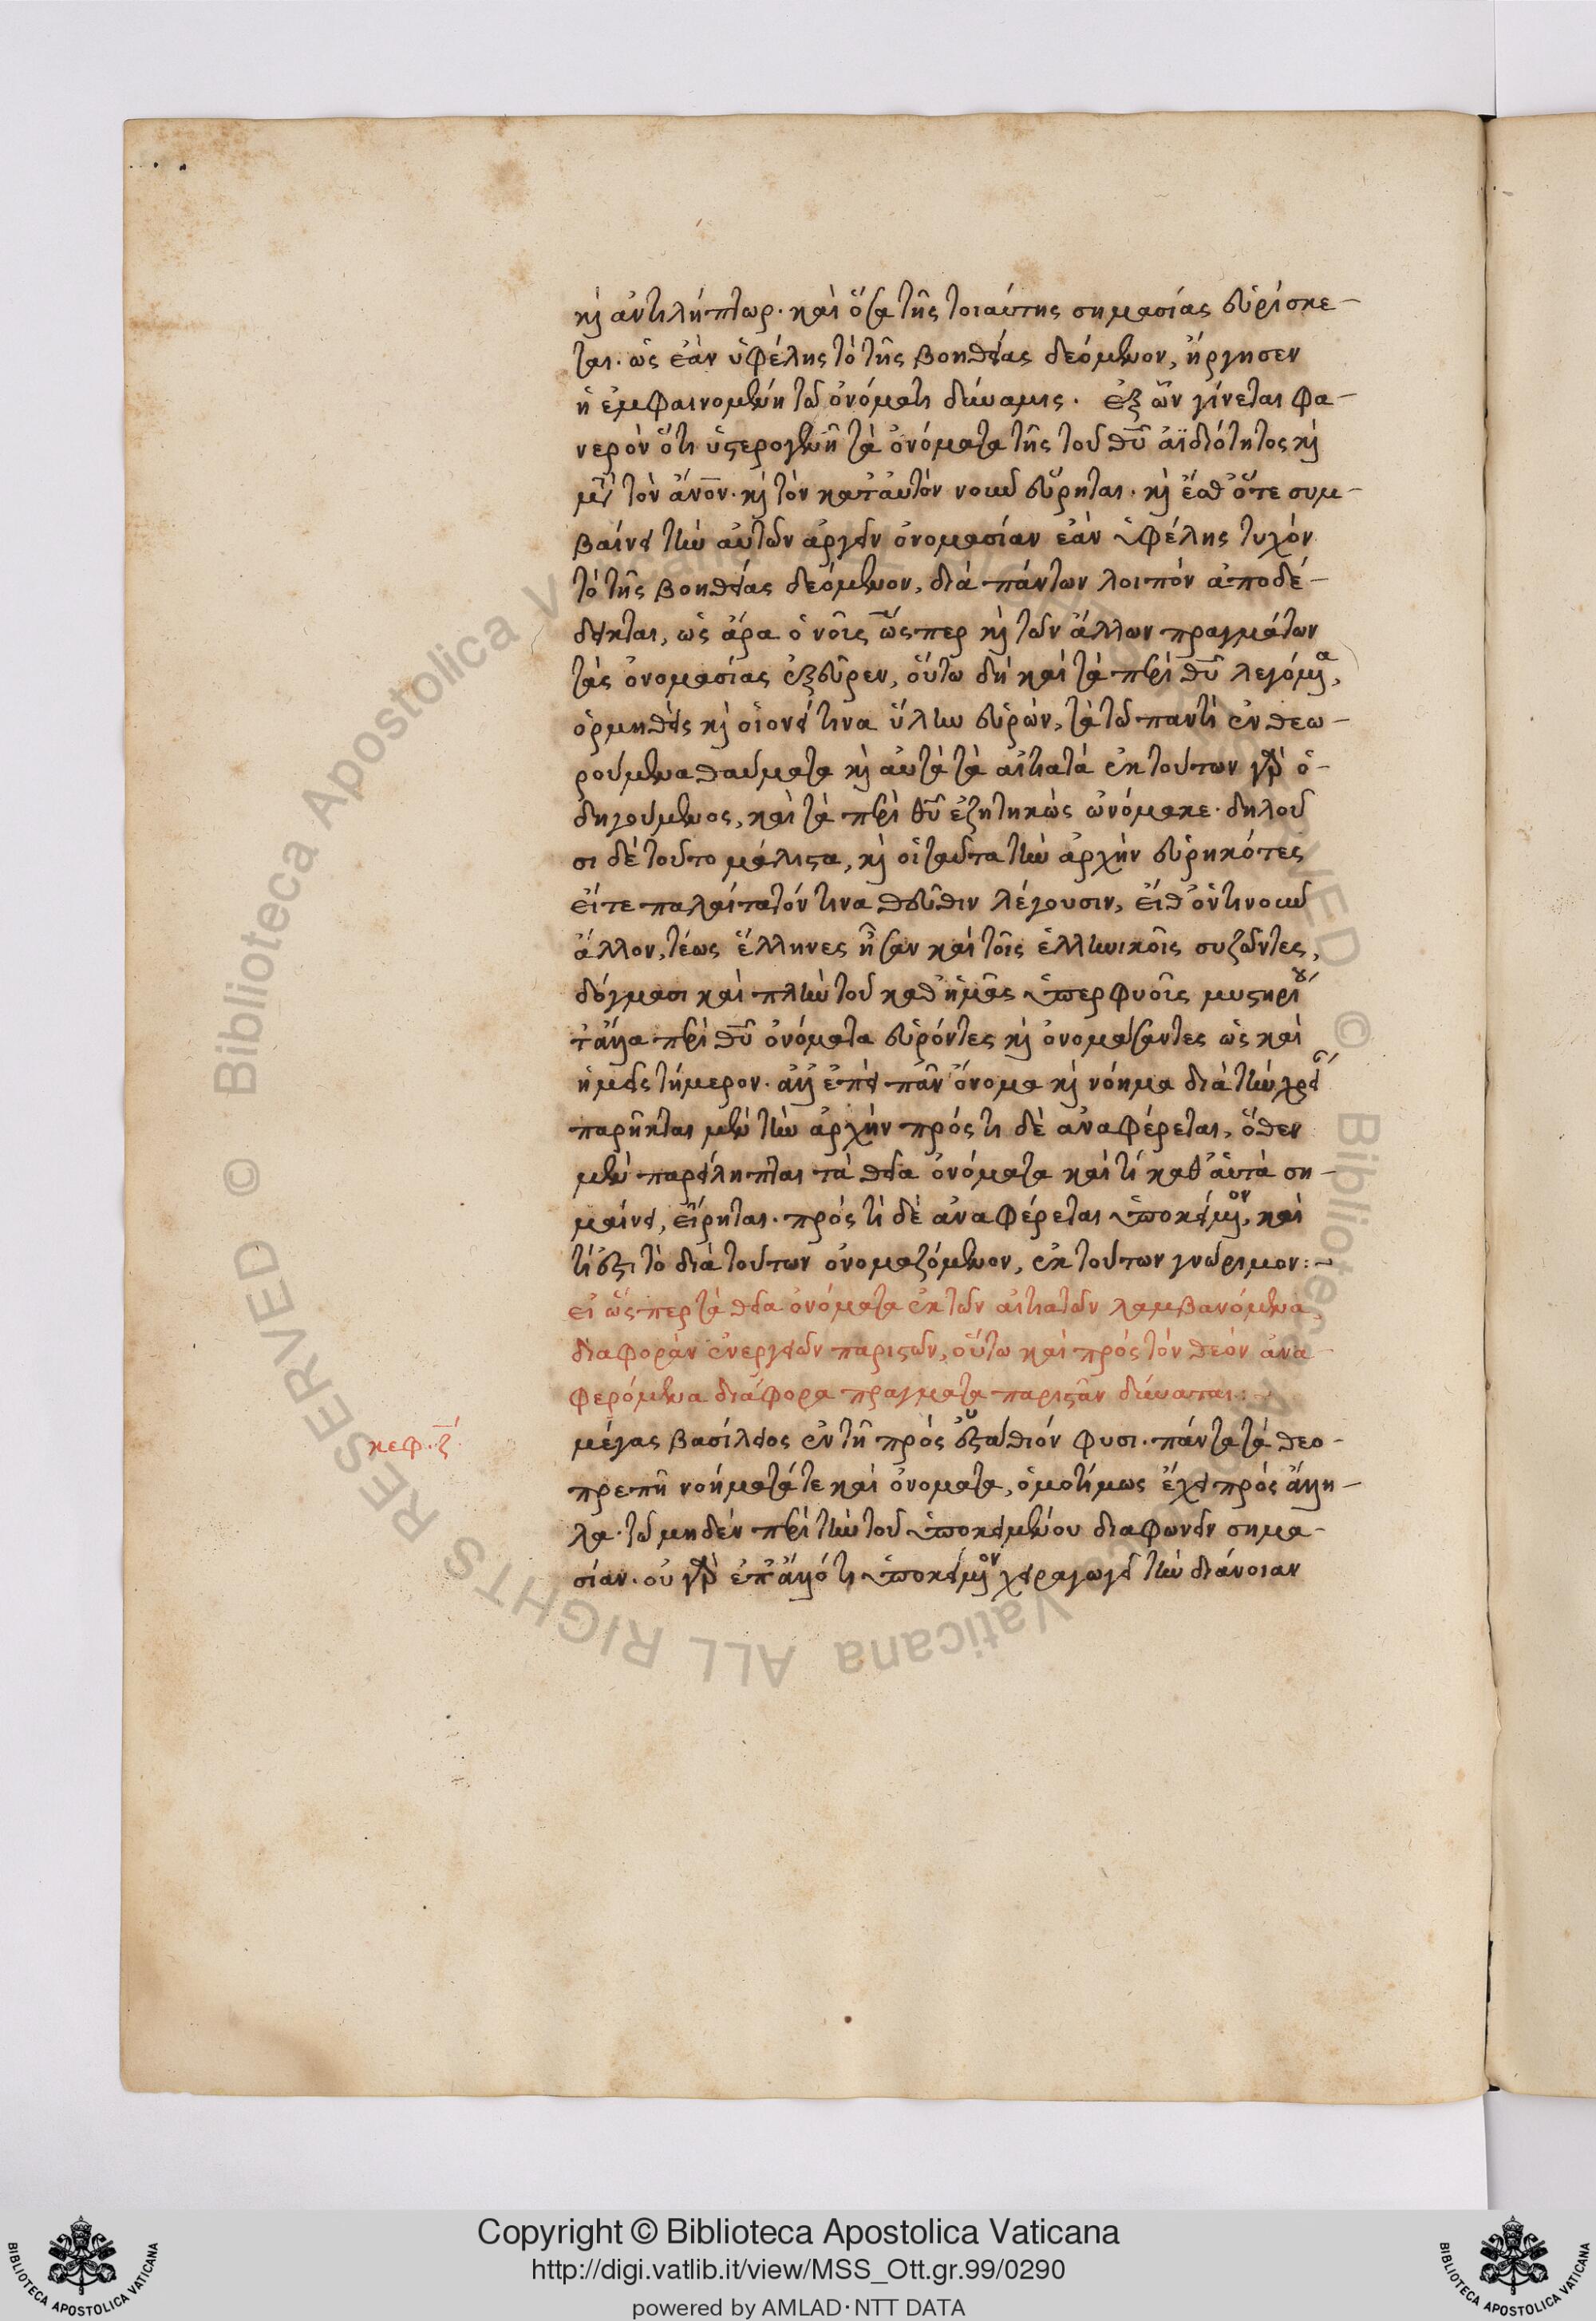 κὶ ἀντιλήπτωρ. καὶ ὅσα τῆς τοιαύτης σημασίας εὑρίσκε-
ται. ὡς ἐὰν ὑφέλης τὸ τῆς βοηθείας δεόμενον, ἤργησεν
ἡ ἐμφαινομένη τῶ ὀνόματι δύναμις. ἐξ ὧν γίνεται φα-
νερὸν ὅτι ὑστερογενῆ τὰ ὀνόματα τῆς τοῦ θῦ ἀϊδιότητος κὶ
μετὰ τὸν ἄνον. κὶ τὸν κατ' αὐτὸν νοῦν εὕρηται. κὶ ἔσθ' ὅτε συμ-
βαίνει τὴν αὐτῶν ἀργεῖν ὀνομασίαν ἐὰν ὑφέλης τυχὸν
τὸ τῆς βοηθείας δεόμενον, διὰ πάντων λοιπὸν ἀποδέ-
δεικται, ὡς ἄρα ὁ νοῦς ὥσπερ κὶ τῶν ἄλλων πραγμάτων
τὰς ὀνομασίας ἐξεῦρεν, οὕτω δὴ καὶ τὰ περὶ θῦ λεγόμενα,
ὁρμηθεὶς κὶ οἱονεί τινα ὕλην εὑρὼν, τὰ τῶ παντὶ ἐνθεω-
ρούμενα θαύματα κὶ αὐτὰ τὰ αἰτιατά ἐκ τούτων γὰρ ὁ-
δηγούμενος, καὶ τὰ περὶ θῦ ἐζητηκὼς ὠνόμακε. δηλοῦ
σι δὲ τοῦτο μάλιστα, κὶ οἱ ταῦτα τὴν ἀρχὴν εὑρηκότες
εἴτε παλαίτατόν τινα θευθιν λέγουσιν, εἴθ' ὁντινοῦν
ἄλλον, τέως ἕλληνες ἦσαν καὶ τοῖς ἑλληνικοῖς συζῶντες,
δόγμασι καὶ πλὴν τοῦ καθ' ἡμᾶς ὑπερφυοῦς μυστηρίου
τἄλλα περὶ θῦ ὀνόματα εὑρόντες κὶ ὀνομάσαντες ὡς καὶ
ἡμεῖς τήμερον. ἀλλ' ἐπεὶ πᾶν ὄνομα κὶ νόημα διὰ τὴν χρεί
παρῆκται μὲν τὴν ἀρχὴν πρός τι δὲ ἀναφέρεται, ὅθεν
μὲν παρείληπται τὰ θεῖα ὀνόματα καὶ τί καθ' αὑτὰ ση-
μαίνει, εἴρηται. πρὸς τί δὲ ἀναφέρεται ὑποκείμενον, καὶ
τί ἐστι τὸ διὰ τούτων ὀνομαζόμενον, ἐκ τούτων γνώριμον:-
εἰ ὥσπερ τὰ θεῖα ὀνόματα ἐκ τῶν αἰτιατῶν λαμβανόμενα,
διαφορὰν ἐνεργειῶν παριστῶν, οὕτω καὶ πρὸς τὸν θεὸν ἀνα-
φερόμενα διάφορα πράγματα παριστᾶν δύναται:-
κεφ. ζ
μέγας βασίλειος ἐν τῆ πρὸς εὐστάθιόν φυσι. πάντα τὰ θεο-
πρεπῆ νοήματά τε καὶ ὀνοματα, ὁμοτίμως ἔχει πρὸς ἄλλη-
λα. τῶ μηδὲν περὶ τὴν τοῦ ὑποκειμένου διαφωνεῖν σημα-
σίαν. οὐ γὰρ ἐπ' ἄλλό τι ὑποκείμενον χειραγωγεῖ τὴν διάνοιαν
Copyright © Biblioteca Apostolica Vaticana
http://digi.vatlib.it/view/MSS_Ott.gr.99/0290
powered by AMLAD·NTT DATA
BIBLIOTECA APOSTOLICA VATICANA
BIBLIOTECA APOSTOLICA VATICANA
© Biblioteca Apostolica Vaticana ALL RIGHTS RESERVED